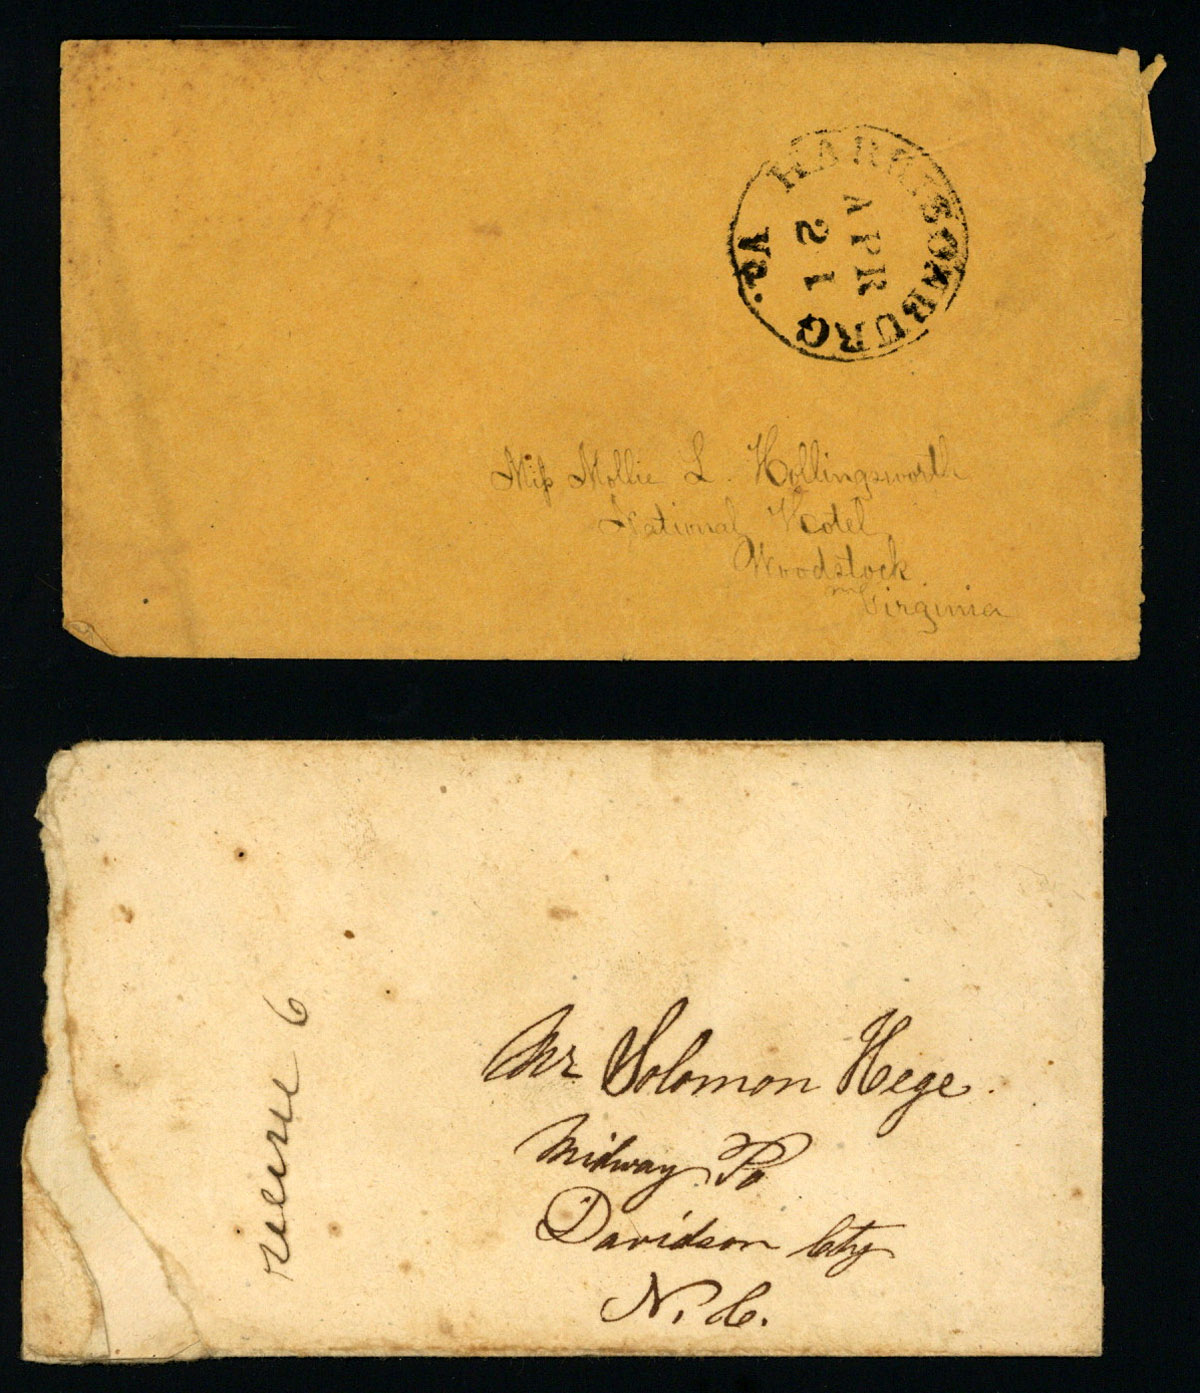 HARRISONBURG Va.
APR
21
Miss Mollie L. Hollingsworth
National Hotel
Woodstock
Virginia
Mr Solomon Hege.
Midway Po
Davidson Cty
N. C.
6